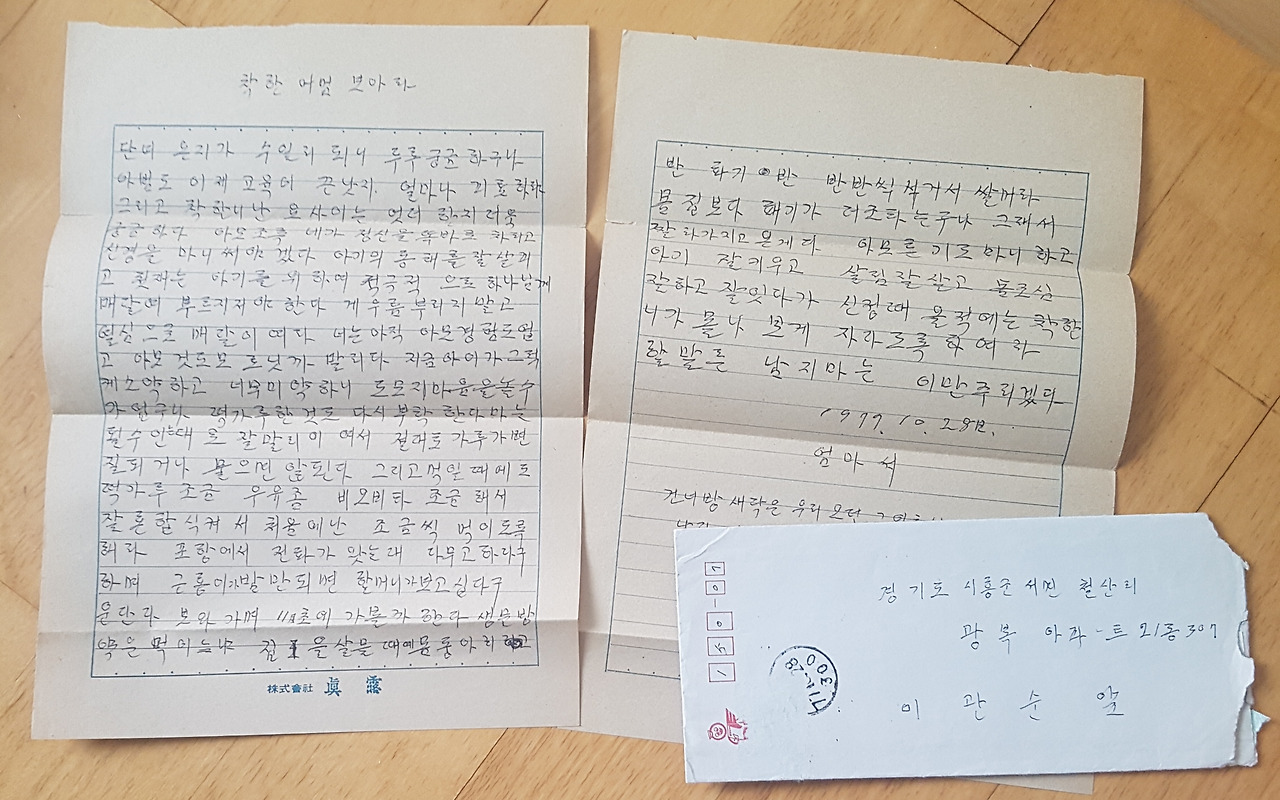 착한 어멈 보아라
단여 온지가 수일리 되니 루루궁굼 하구나
아범도 이제 고육이 끈낫지. 얼마나 괴로 하랴
그리고 착한니난 요사이는 엇더 한지 러욱
궁궁하다 아모조록 네가 정신을 똑바로 차리고
신경을 마니써야 겠다 아기의 동래를 잘살피
고 첫재는 아기를 위하여 적극적 으로 하나님게
매달여 부르지저야 한다 게우름부리지 말고
열심으로 매달이 여라 너는아직 아모경험도업
고 아모것도모로닛까 말리다 지금아이가그럭
케소약하고 너무미약하니 도모지마음을놀수
가 업구나 떡가루한것도 다시부탁 한다마는
될수인는대로 잘말리이 여서 절대로가루가변
질되거나 물으면 않된다 그리고먹일때에도
떡가루 조금 우유좀 비오비타 조금 해서
잘혼합식켜서 처음에난 조금씩 먹이도록
해라 포항에서 전화가 왓는대 다무고하다구
하며 근흠이가발만되면 할머니가보고십다구
운단다 보와가며 11월초에 가를까 한다 생문방
약은 먹이는냐 집 을살물 때에 뭄둥아리
株式會社 眞露
반 화기 반 반반씩 석거서 쌀까라
물질보다 패기가 더조타는구나 그래서
잘 라가지고온게다 아모른기도마니하고
아기 잘키우고 살림잘살고 몸조심
잘하고 잘잇다가 신정때 올적에는 착한
니가 몰나 보게 자라도록 하여라
할말른 남지마는 이만주리겠다
1977. 10. 28日.
엄마 서
건너방 새닥은 우리
경기도 시흥군 서면 철산리
광복 아파-트 21동307
이 관 순 앞
150-01
300